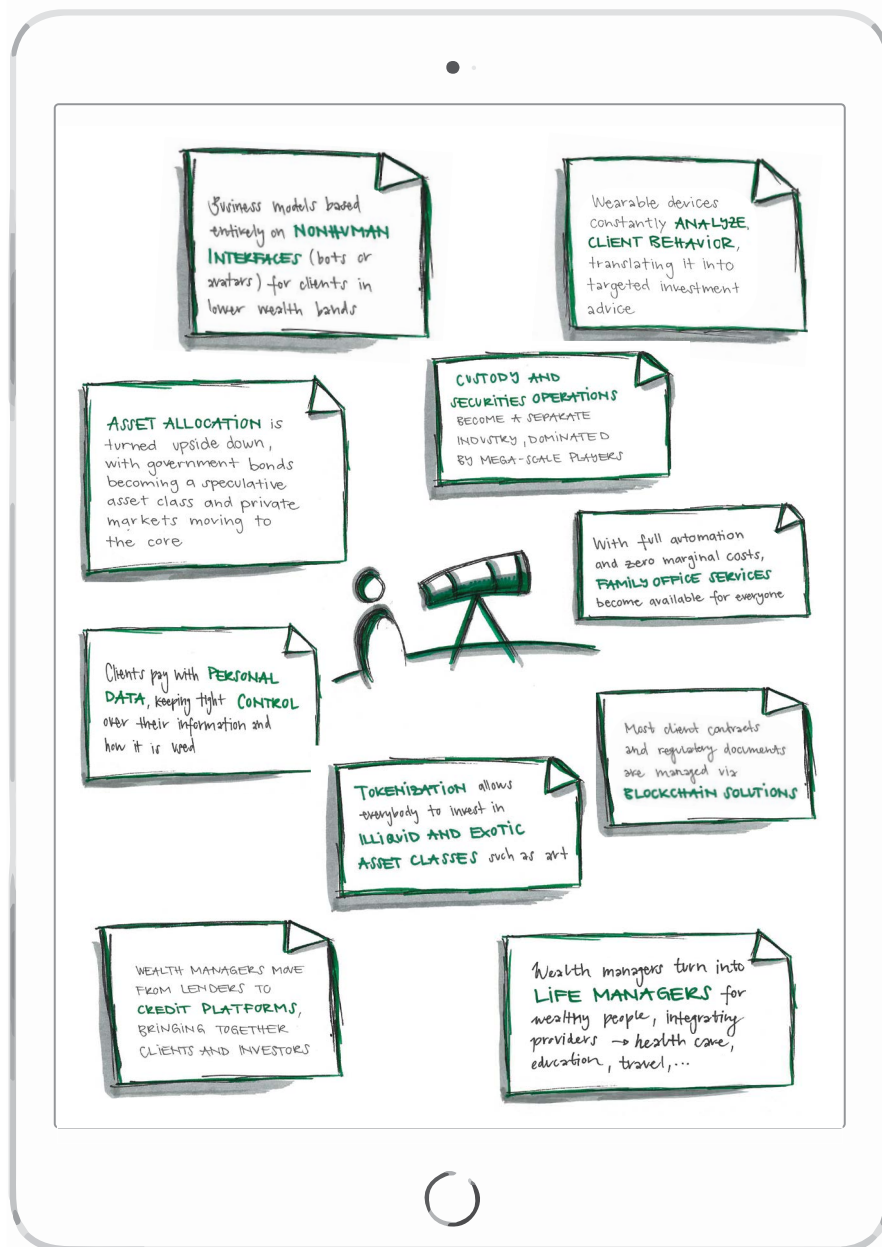 Business models based
entirely on NONHUMAN
INTERFACES (bots or
avatars) for clients in
lower wealth bands
Wearable devices
constantly ANALYZE
CLIENT BEHAVIOR,
translating it into
targeted investment
advice
CUSTODY AND
SECURITIES OPERATIONS
BECOME A SEPARATE
INDUSTRY, DOMINATED
BY MEGA-SCALE PLAYERS
ASSET ALLOCATION is
turned upside down,
with government bonds
becoming a speculative
asset class and private
markets moving to
the core
With full automation
and zero marginal costs,
FAMILY OFFICE SERVICES
become available for everyone
Clients pay with PERSONAL
DATA, keeping tight CONTROL
over their information and
how it is used
Most client contracts
and regulatory documents
are managed via
BLOCKCHAIN SOLUTIONS
TOKENIZATION allows
everybody to invest in
ILLIQUID AND EXOTIC
ASSET CLASSES such as art
WEALTH MANAGERS MOVE
FROM LENDERS TO
CREDIT PLATFORMS,
BRINGING TOGETHER
CLIENTS AND INVESTORS
Wealth managers turn into
LIFE MANAGERS for
wealthy people, integrating
providers → health care,
education, travel,...